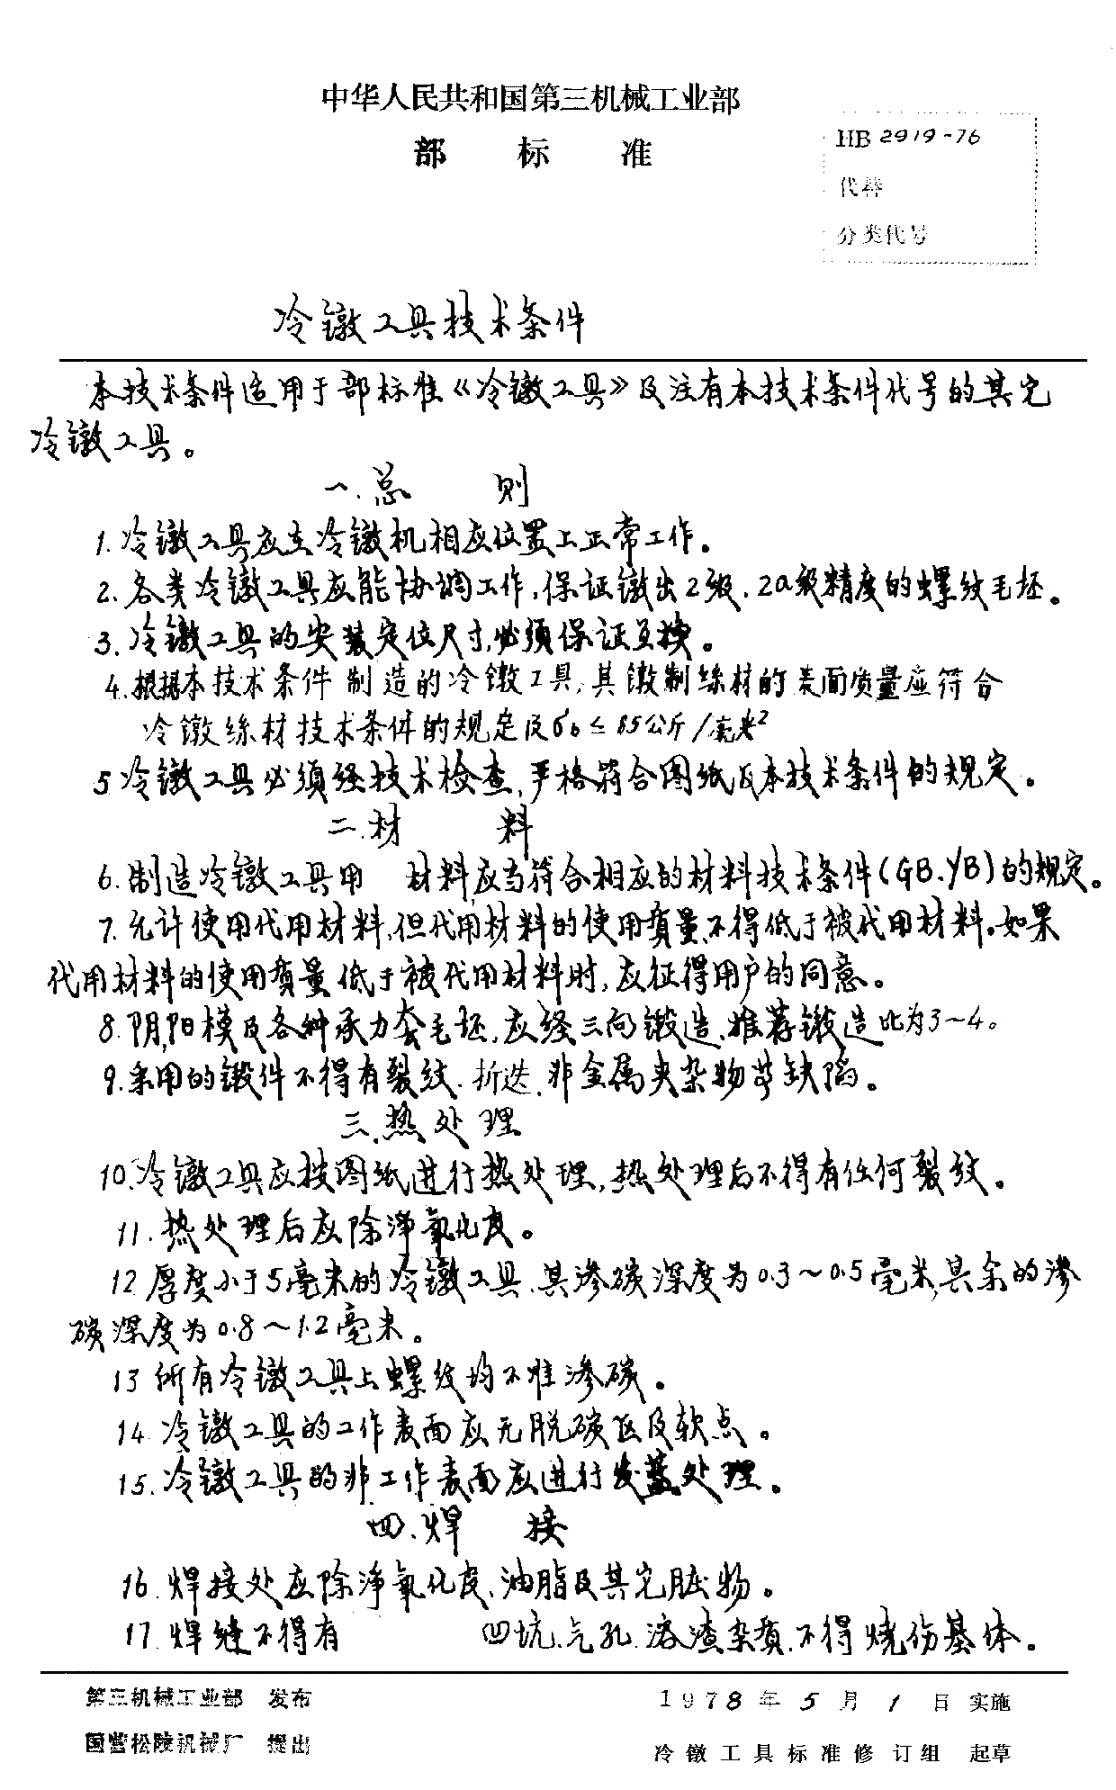 中华人民共和国第三机械工业部
部 标 准
HB 2919-76
代替
分类代号
冷镦工具技术条件
本技术条件适用于部标准《冷镦工具》及注有本技术条件代号的其它
冷镦工具。
一.总 则
1.冷镦工具应在冷镦机相应位置上正常工作。
2.各类冷镦工具应能协调工作,保证镦出2级、2a级精度的螺纹毛坯。
3.冷镦工具的安装定位尺寸,必须保证互换。
4.根据本技术条件 制造的冷镦工具,其镦制线材的表面质量应符合
冷镦线材技术条件的规定及σb≤85公斤/毫米²
5冷镦工具必须经技术检查,严格符合图纸及本技术条件的规定。
二.材 料
6.制造冷镦工具用 材料应当符合相应的材料技术条件(GB.YB)的规定。
7.允许使用代用材料,但代用材料的使用质量不得低于被代用材料。如果
代用材料的使用质量低于被代用材料时,应征得用户的同意。
8.阴,阳模及各种承力套毛坯,应经三向锻造,推荐锻造比为3~4。
9.采用的锻件不得有裂纹.折迭、非金属夹杂物等缺陷。
三.热处理
10.冷镦工具应按图纸进行热处理,热处理后不得有任何裂纹。
11.热处理后应除净氧化皮。
12.厚度小于5毫米的冷镦工具.其渗碳深度为0.3~0.5毫米,其余的渗
碳深度为0.8~1.2毫米。
13 所有冷镦工具上螺纹均不准渗碳。
14.冷镦工具的工作表面应无脱碳区及软点。
15.冷镦工具的非工作表面应进行发蓝处理。
四.焊 接
16.焊接处应除净氧化皮、油脂及其它脏物。
17.焊缝不得有 凹坑、气孔.溶渣杂质.不得烧伤基体。
第三机械工业部 发布 1978年5月1日 实施
国营松陵机械厂 提出 冷镦工具标准修订组 起草